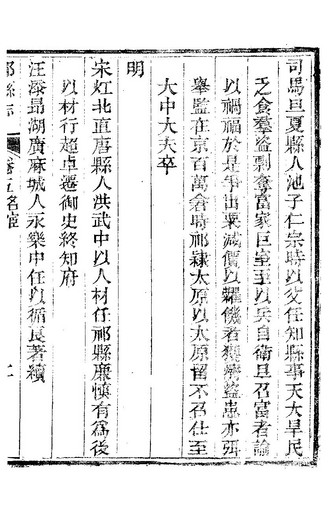 司馬旦夏縣人池子仁宗時以父任知縣事天大旱民
乏食羣盜剽奪富家巨室至以兵自衛旦召富者諭
以禍福於是爭出粟減價以糶饑者獲濟盜患亦弭
舉監在京百萬倉時祁隸太原以太原留不召仕至
大中大夫卒
明
宋虹北直唐縣人洪武中以人材任祁縣廉慎有為後
以材行超卓遷御史終知府
汪漆昂湖廣麻城人永樂中任以循良著績
祁縣志
卷五名宦
二